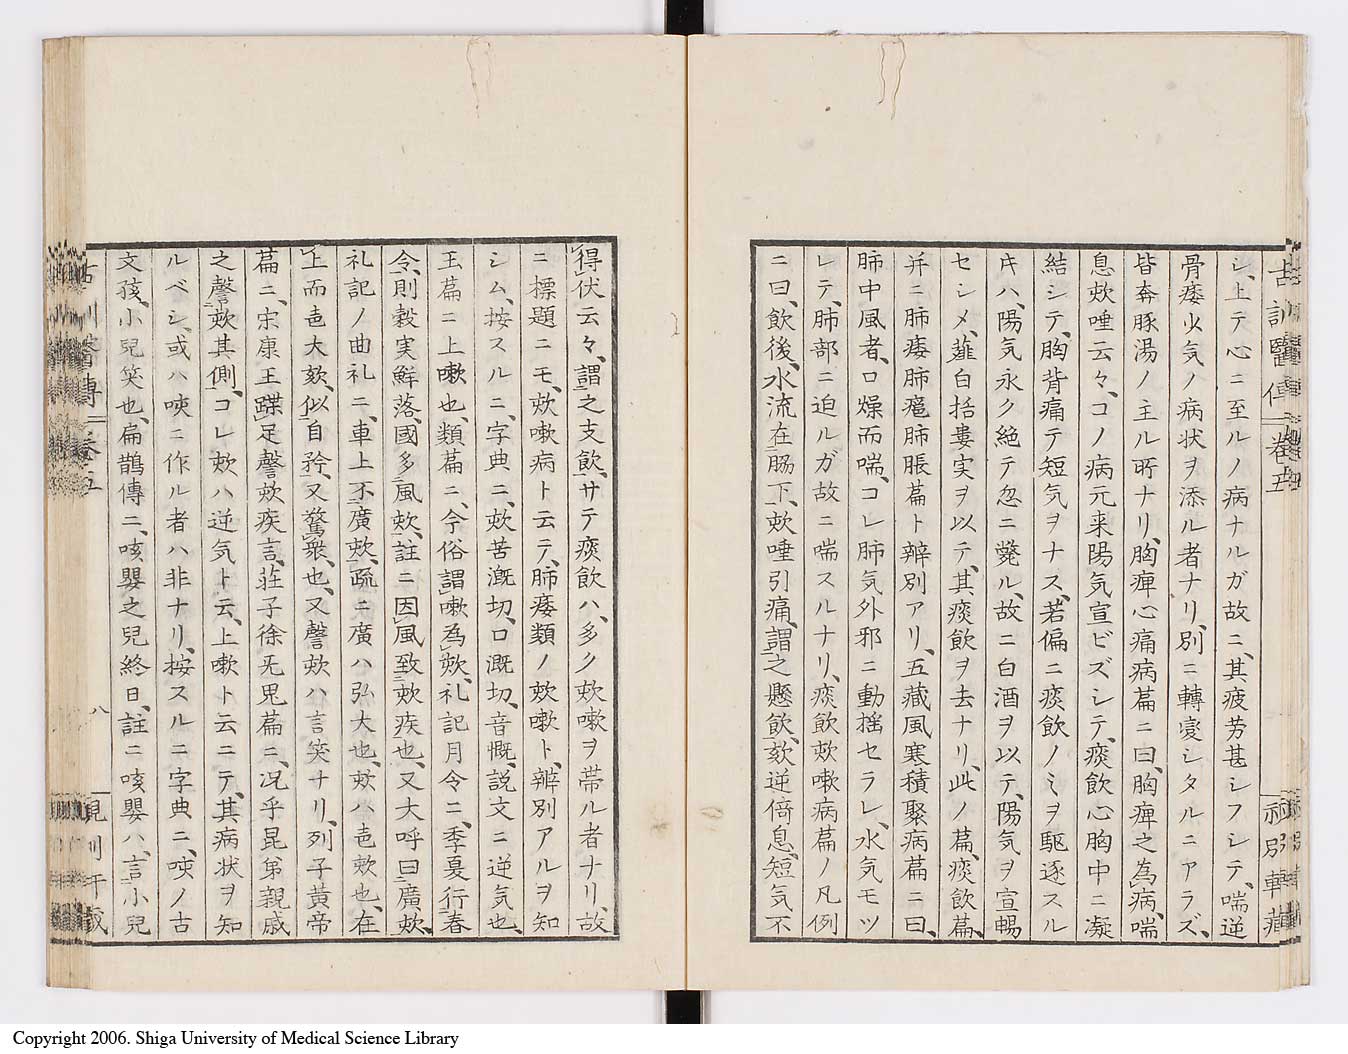 古訓醫傳 卷五
シ、上テ心ニ至ルノ病ナルガ故ニ、其疲労甚シフシテ、喘逆
骨痿少気ノ病状ヲ添ル者ナリ、別ニ轉変シタルニアラズ、
皆奔豚湯ノ主ル所ナリ、胸痺心痛病萹ニ曰、胸痺之為病、喘
息欬唾云々、コノ病元来陽気宣ビズシテ、痰飲心胸中ニ凝
結シテ、胸背痛テ短気ヲナス、若偏ニ痰飲ノミヲ駆逐スル
キハ、陽気永ク絶テ忽ニ斃ル、故ニ白酒ヲ以テ、陽気ヲ宣暢
セシメ、薤白括蔞実ヲ以テ、其痰飲ヲ去ナリ、此ノ萹、痰飲萹、
并ニ肺痿肺癰肺脹萹ト辨別アリ、五藏風寒積聚病萹ニ曰、
肺中風者、口燥而喘、コレ肺気外邪ニ動揺セラレ、水気モツ
レテ、肺部ニ迫ルガ故ニ喘スルナリ、痰飲欬嗽病萹ノ凡例
ニ曰、飲後、水流在脇下、欬唾引痛、謂之懸飲、欬逆倚息、短気不
得伏云々、謂之支飲、サテ痰飲ハ、多ク欬嗽ヲ帯ル者ナリ、故
ニ標題ニモ、欬嗽病ト云テ、肺痿類ノ欬嗽ト、辨別アルヲ知
シム、按スルニ、字典ニ、欬苦漑切、口漑切、音慨、説文ニ逆気也、
玉萹ニ上嗽也、類萹ニ、今俗謂嗽為欬、礼記月令ニ、季夏行春
令、則穀実鮮落、國多風欬、註ニ因風致欬疾也、又大呼曰廣欬、
礼記ノ曲礼ニ、車上不廣欬、疏ニ廣ハ弘大也、欬ハ声欬也、在
上而声大欬、似自矜、又驚衆也、又謦欬ハ言笑ナリ、列子黄帝
萹ニ、宋康王蹀足謦欬疾言、荘子徐旡鬼萹ニ、况乎昆弟親戚
之謦欬其側、コレ欬ハ逆気ト云、上嗽ト云ニテ、其病状ヲ知
ルベシ、或ハ咳ニ作ル者ハ非ナリ、按スルニ字典ニ、咳ノ古
文孩、小兒笑也、扁鵲傳ニ、咳嬰之兒終日、註ニ咳嬰ハ、言小兒
八